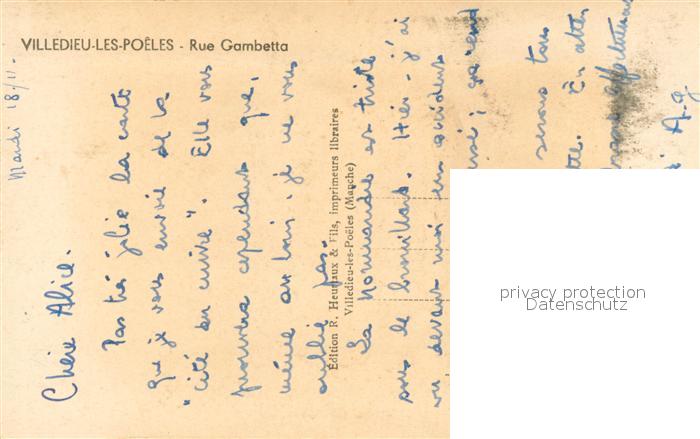 VILLEDIEU-LES-POÊLES - Rue Gambetta
Mardi 18/11.
Chère Alice.
Pas très jolie la carte
que je vous envoie de la
"cité du cuivre". Elle vous
prouvera cependant que,
même au loin, je ne vous
oublie pas.
La Normandie est triste
sous le brouillard. Hier j'ai
vu, devant moi un accident
serons tous
En atten
affectueuse
A.G.
Édition R. Heurtaux & Fils, imprimeurs libraires
Villedieu-les-Poêles (Manche)
privacy protection
Datenschutz